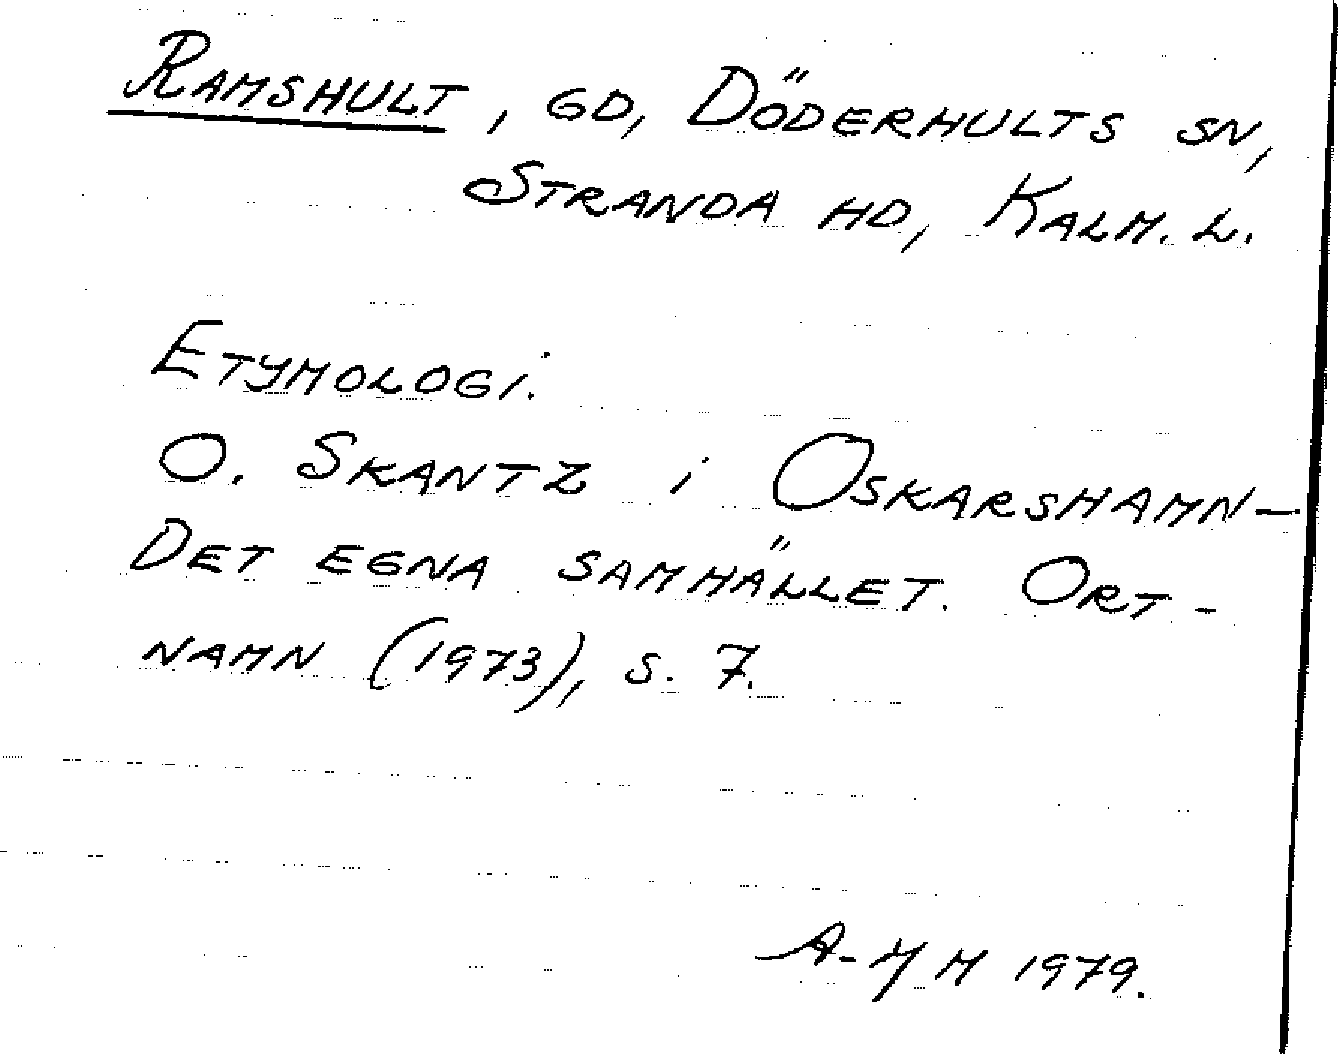 RAMSHULT, GD, DÖDERHULTS SN,
STRANDA HD, KALM. L.
ETYMOLOGI.
O. SKANTZ i OSKARSHAMN-
DET EGNA SAMHÄLLET. ORT-
NAMN (1973), S. 7.
A-YM 1979.